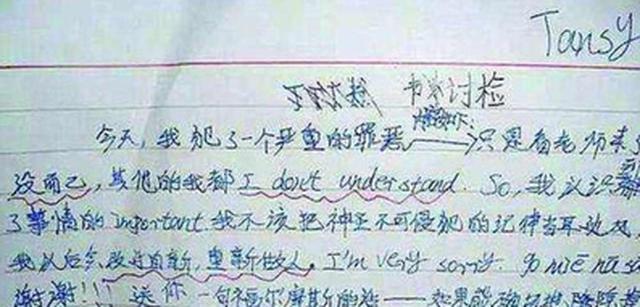 Tansy
书讨检
今天,我犯了一个严重的罪恶——只是看老师来了
没而已,其他的我都 I don't understand. So,我认识到
了事情的 important.我不该把神圣不可侵犯的记律当耳边风,
我以后会改过自新,重新做人. I'm very sorry. go miē na sa
谢谢!!送你一句福尔摩斯的话——如果能确